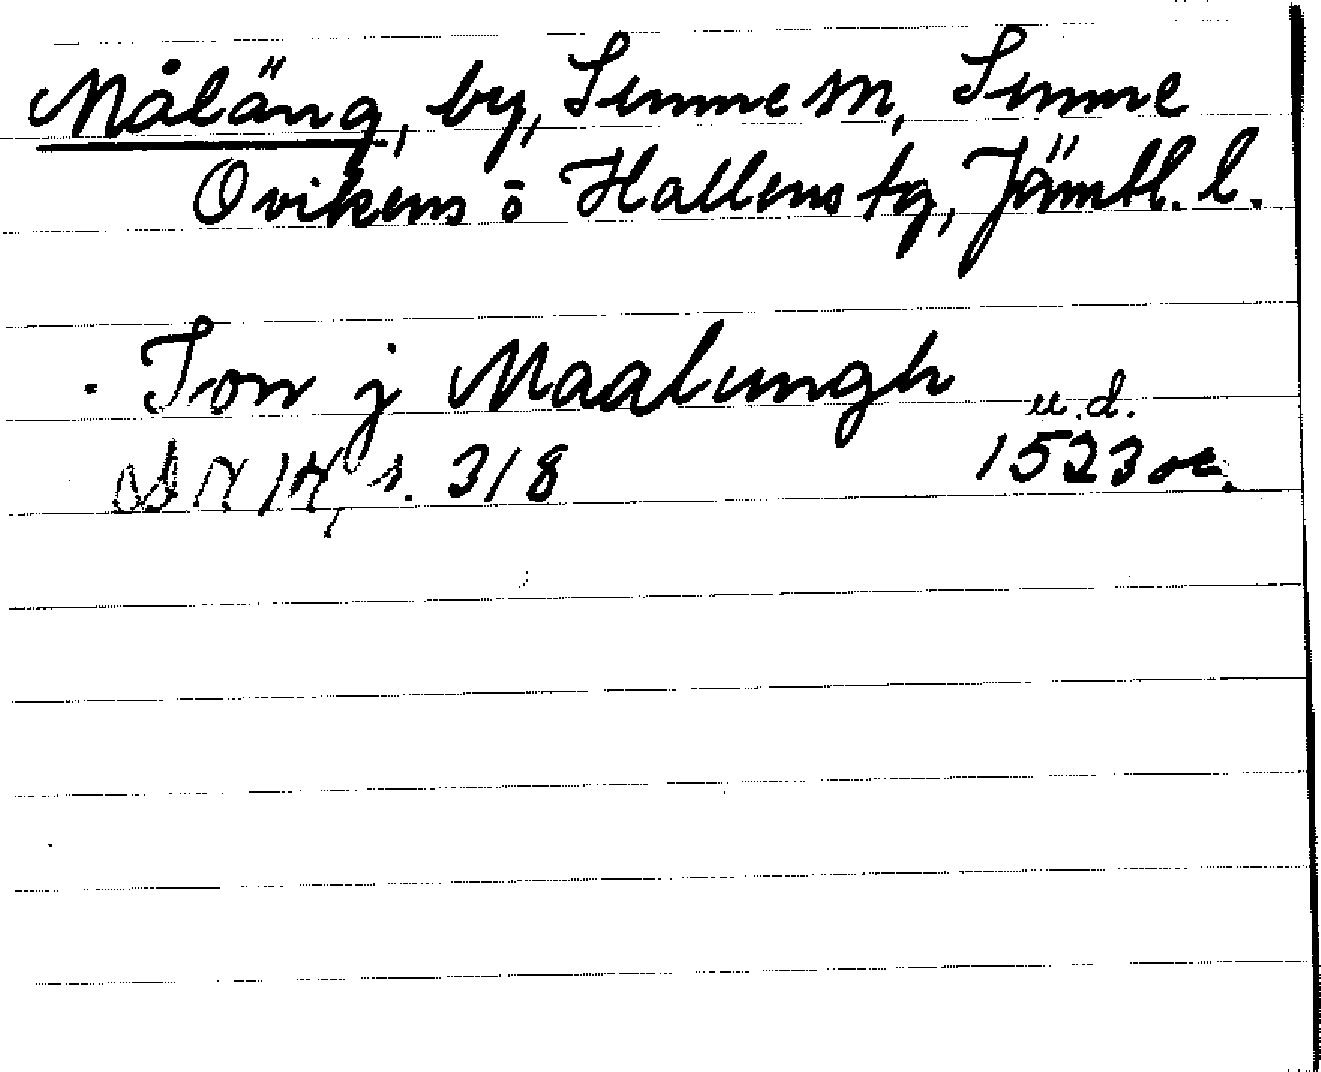 Måläng, by, Sunne sn, Sunne
Ovikens o Hallens tg, Jämtl. l.
Jon j Maalungh u.d.
s. 318 1523